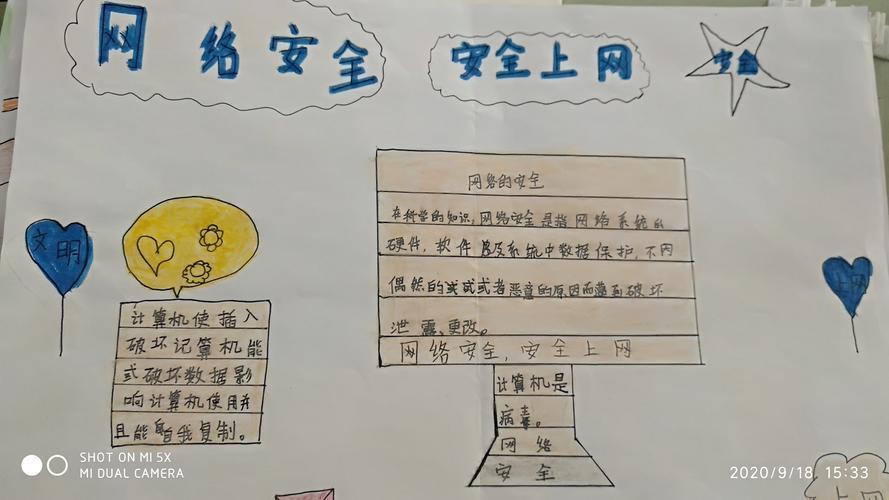 网络安全
安全上网
安全
文明
计算机使插入
破坏记算机能
式破坏数据影
响计算机使用并
且能自我复制。
网络的安全
在科学的知识,网络安全是指网络系统的
硬件,软件及系统中数据保护,不内
偶然的或者恶意的原因而遭到破坏
泄露、更改。
网络安全,安全上网
计算机是
病毒。
网络
安全
上网
上网
SHOT ON MI 5X
MI DUAL CAMERA
2020/9/18 15:33